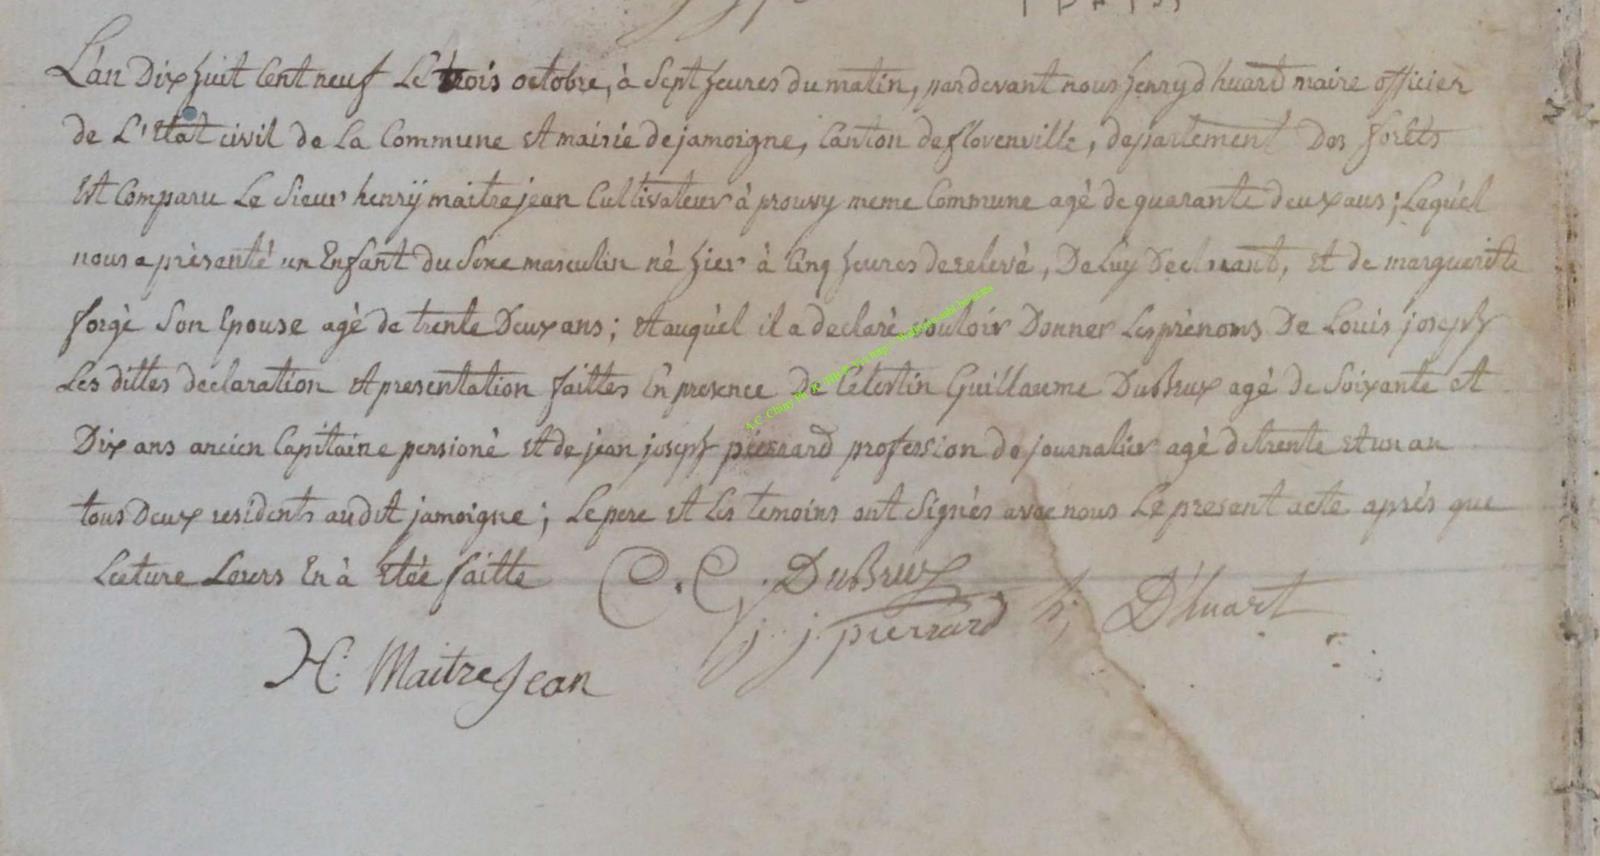 L'an Dix huit Cent neuf Le trois octobre, à Sept heures du matin, pardevant nous henry d huard maire officier
de L'Etat civil de La Commune et mairie de jamoigne, Canton de florenville, departement Des forêts
Est Comparu Le Sieur henrÿ maitrejean Cultivateur à prouvy meme Commune agé de quarante deux ans; Lequél
nous a présanté un Enfant du Sexe masculin né hier à Cinq heures de relevé, De Luy Declarant, Et de margueritte
forgé Son Epouse agé de trente Deux ans; Et auquél il a declaré vouloir Donner Les prénoms De Louis joseph
Les dittes declaration Et presentation faittes En presence De Celestin Guillaume DuBrux agé de Soixante et
Dix ans ancien Capitaine pensioné Et de jean joseph pierrard profession de journalier agé de trente et un an
tous Deux residents audit jamoigne; Le pere et Les temoins ont Signés avec nous Le present acte aprés que
Lecture Leurs En à Etée faitte
C. C. DuBrux
j. j. pierrard
h; D'huart
H. Maitrejean